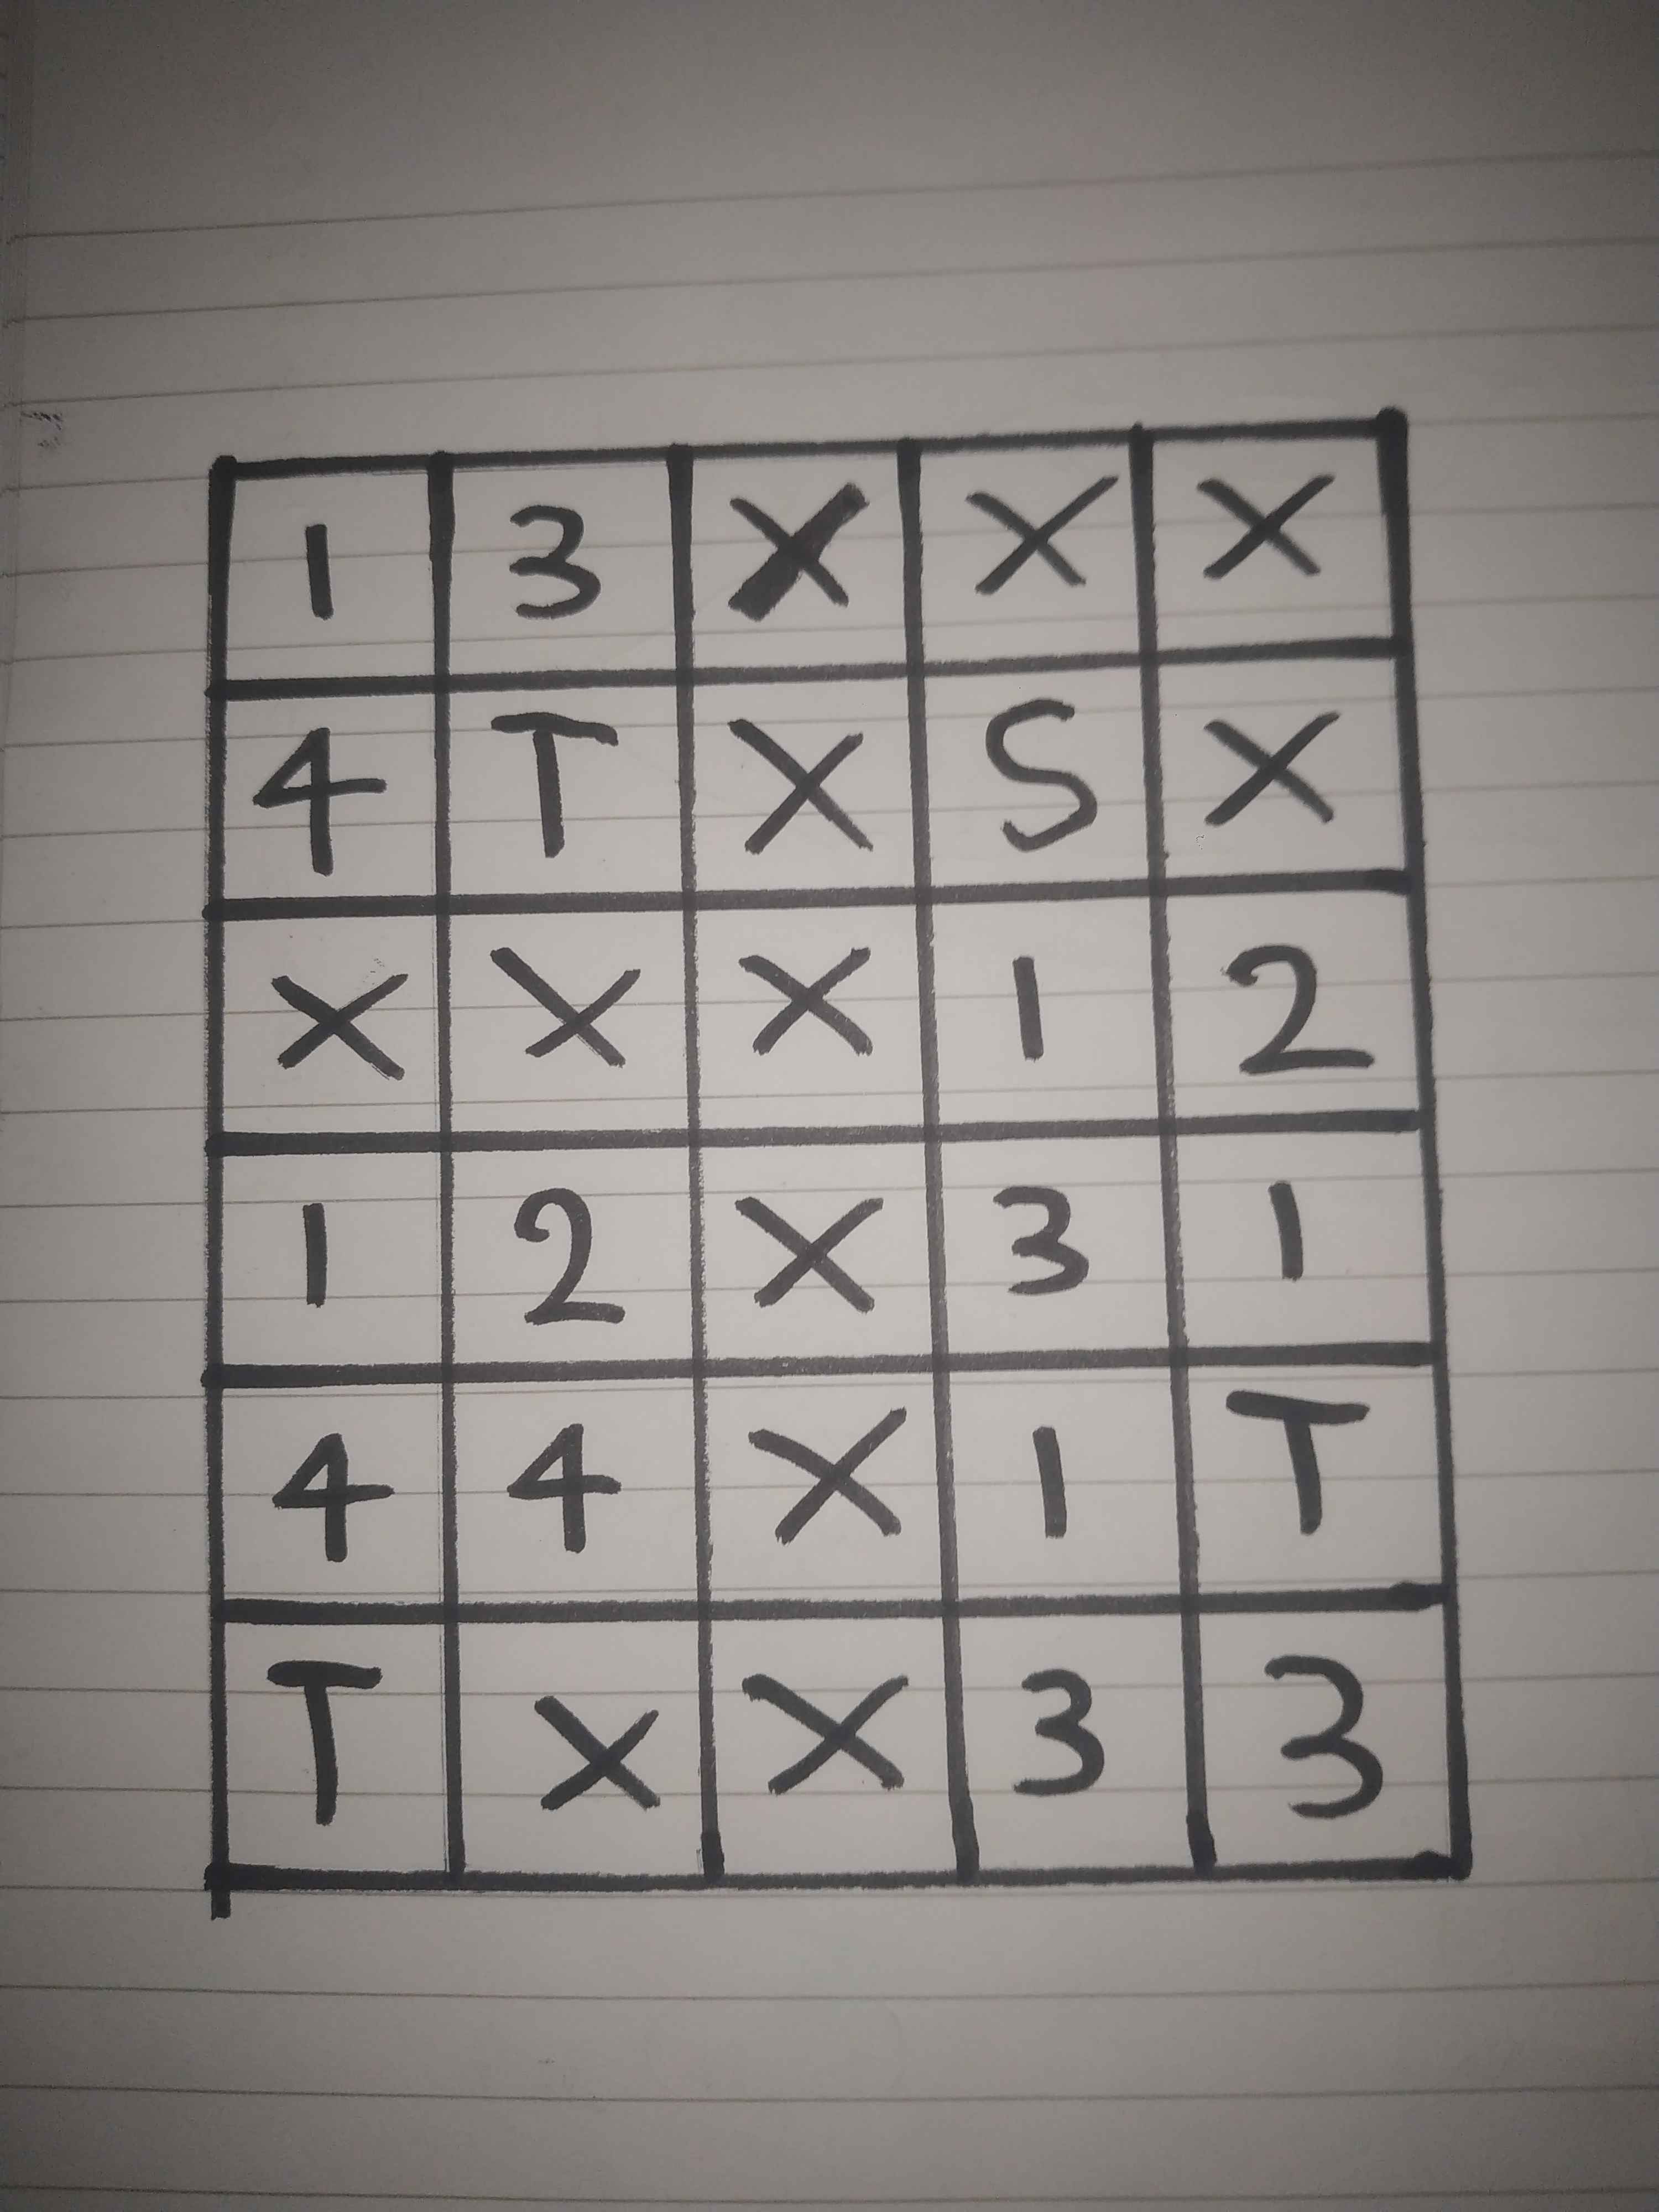 1 3 X X X
4 T X S X
X X X 1 2
1 2 X 3 1
4 4 X 1 T
T X X 3 3